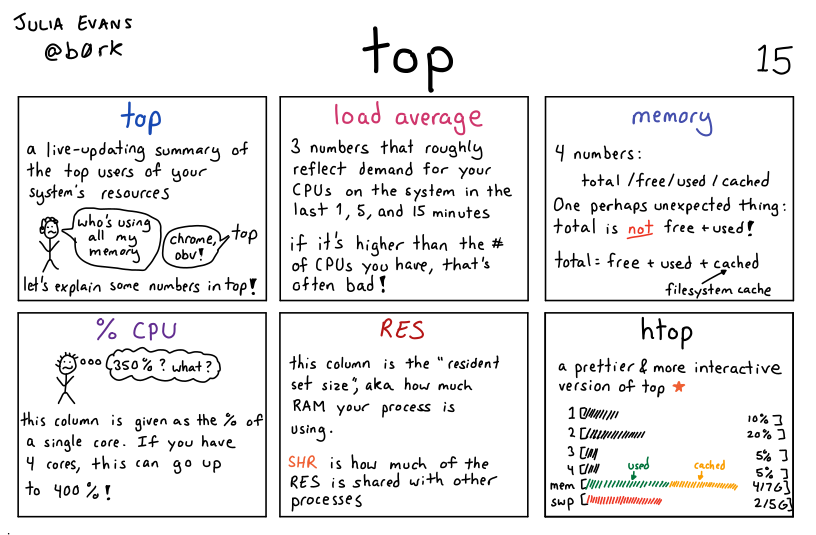 JULIA EVANS
@b0rk
top
15
top
a live-updating summary of
the top users of your
system's resources
who's using
all my
memory
chrome,
obv!
top
let's explain some numbers in top!
load average
3 numbers that roughly
reflect demand for your
CPUs on the system in the
last 1, 5, and 15 minutes
if it's higher than the #
of CPUs you have, that's
often bad!
memory
4 numbers:
total /free/used / cached
One perhaps unexpected thing:
total is not free + used!
total = free + used + cached
filesystem cache
% CPU
350% ? what?
this column is given as the % of
a single core. If you have
4 cores, this can go up
to 400 %!
RES
this column is the "resident
set size", aka how much
RAM your process is
using.
SHR is how much of the
RES is shared with other
processes
htop
a prettier & more interactive
version of top ★
1 [ 10% ]
2 [ 20% ]
3 [ 5% ]
used cached
4 [ 5% ]
mem [ 4/7G]
swp [ 2/5G]